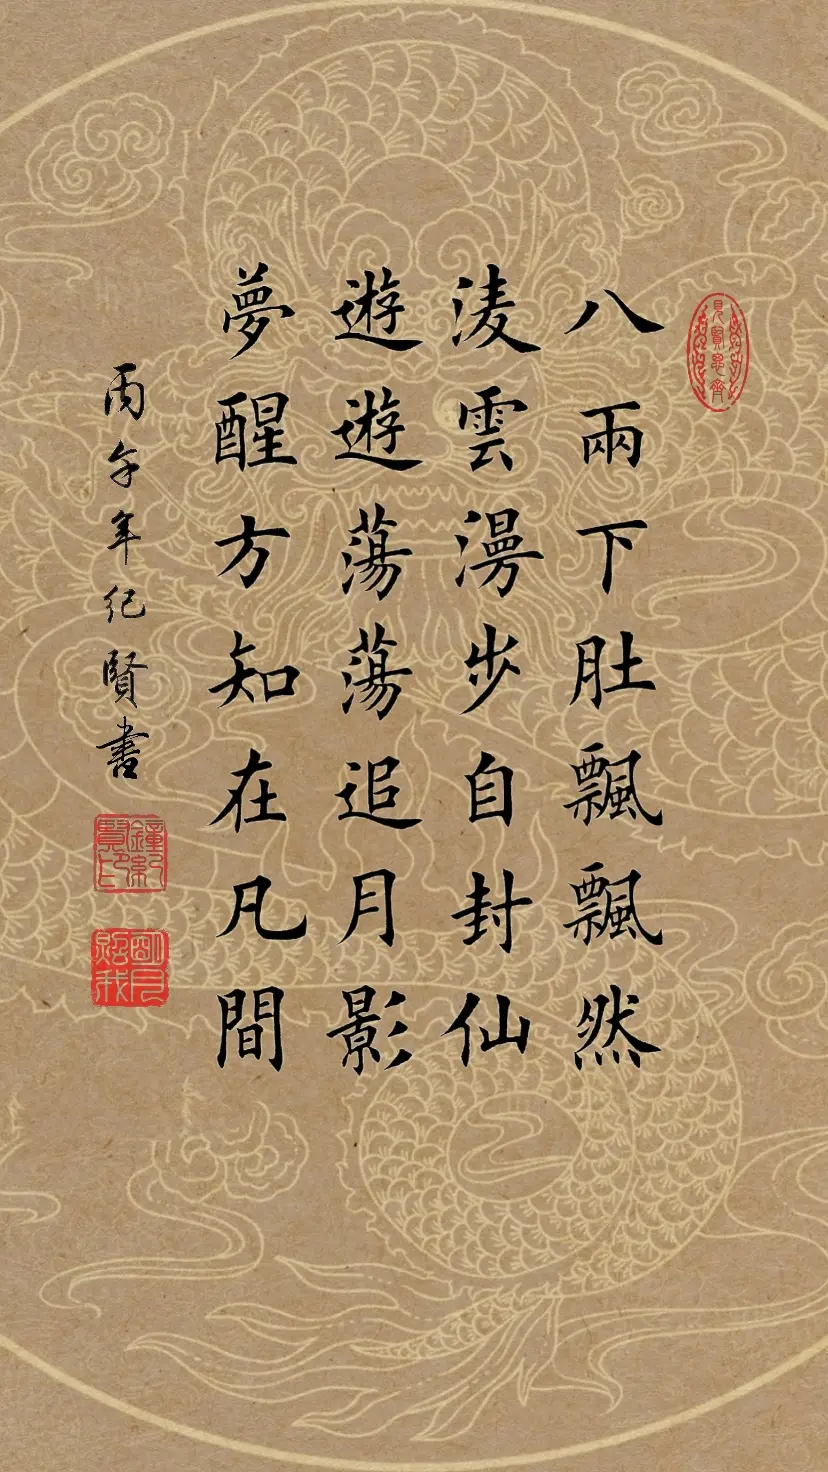 見賢思齊
八兩下肚飄飄然
淩雲漫步自封仙
遊遊蕩蕩追月影
夢醒方知在凡間
丙午年纪賢書
鐘紀賢印